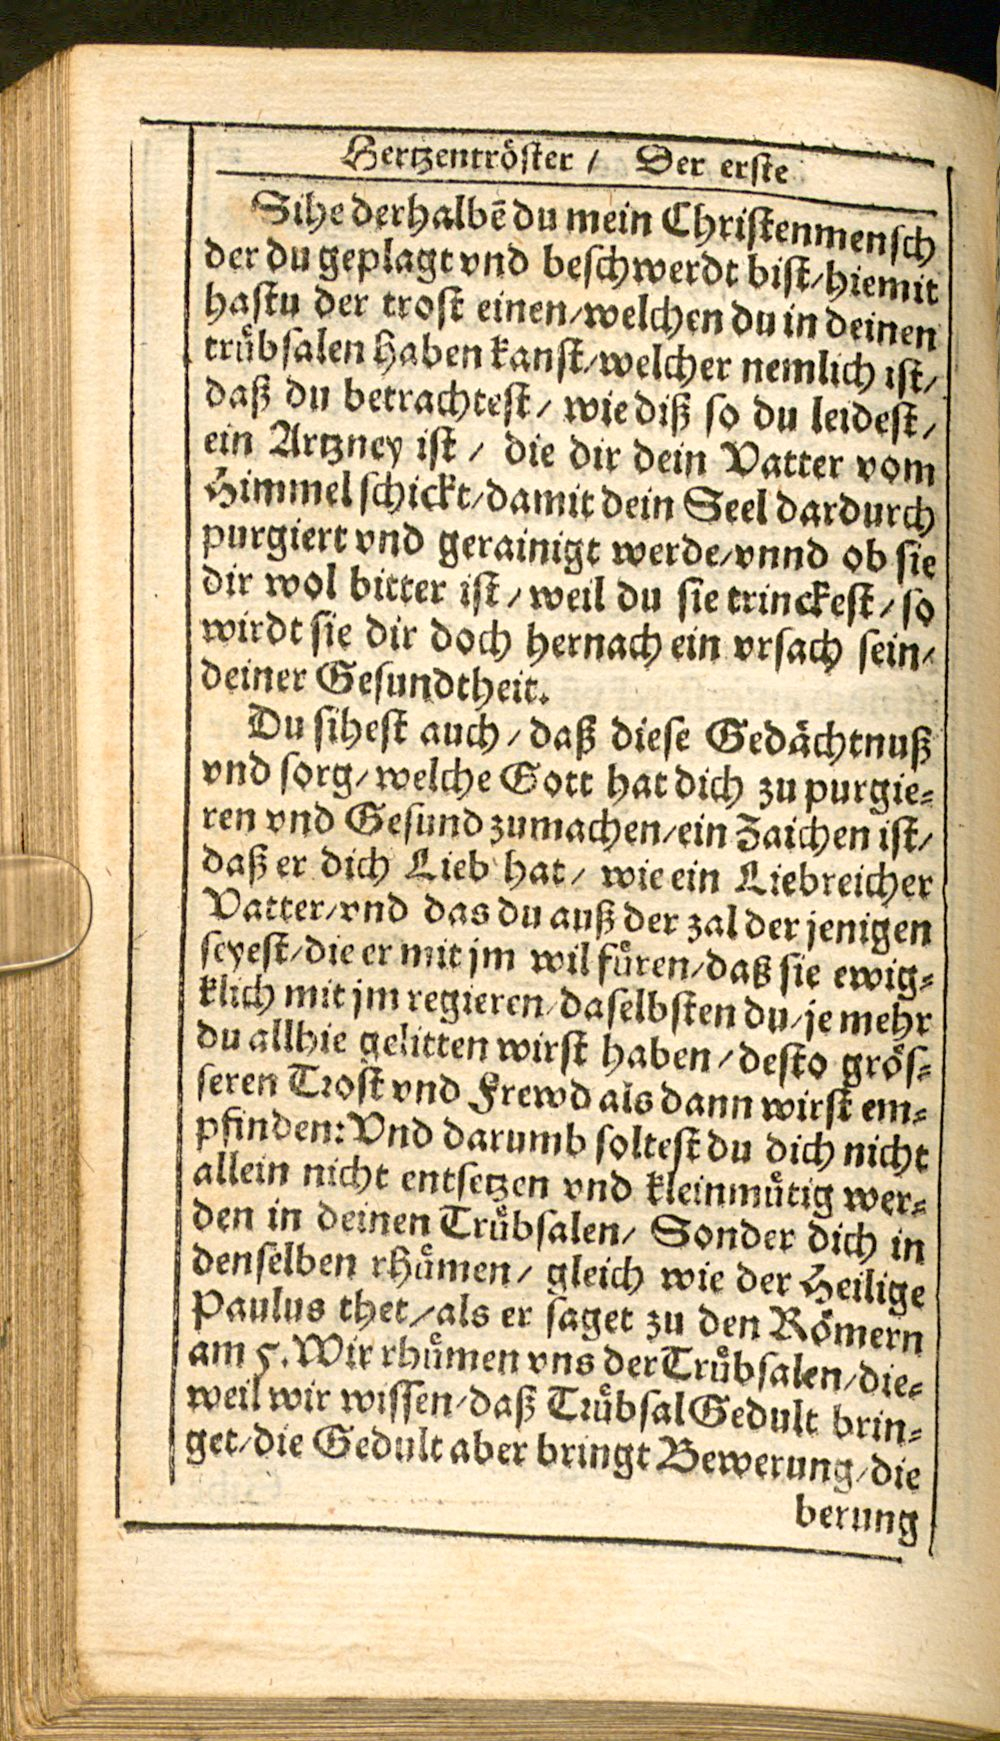 Hertzentröster / Der erste
Sihe derhalbē du mein Christenmensch
der du geplagt vnd beschwerdt bist / hiemit
hastu der trost einen / welchen du in deinen
trůbsalen haben kanst / welcher nemlich ist /
daß du betrachtest / wie diß so du leidest /
ein Artzney ist / die dir dein Vatter vom
Himmel schickt / damit dein Seel dardurch
purgiert vnd gerainigt werde / vnnd ob sie
dir wol bitter ist / weil du sie trinckest / so
wirdt sie dir doch hernach ein vrsach sein /
deiner Gesundtheit.
Du sihest auch / daß diese Gedächtnuß
vnd sorg / welche Gott hat dich zu purgie=
ren vnd Gesund zumachen / ein Zaichen ist /
daß er dich Lieb hat / wie ein Liebreicher
Vatter / vnd das du auß der zal der jenigen
seyest / die er mit jm wil fůren / daß sie ewig=
klich mit jm regieren / daselbsten du / je mehr
du allhie gelitten wirst haben / desto grös=
seren Trost vnd Frewd als dann wirst em=
pfinden: Vnd darumb soltest du dich nicht
allein nicht entsetzen vnd kleinmůtig wer=
den in deinen Trůbsalen / Sonder dich in
denselben rhůmen / gleich wie der Heilige
Paulus thet / als er saget zu den Römern
am 5. Wir rhůmen vns der Trůbsalen / die=
weil wir wissen / daß Trůbsal Gedult brin=
get / die Gedult aber bringt Bewerung / die
berung